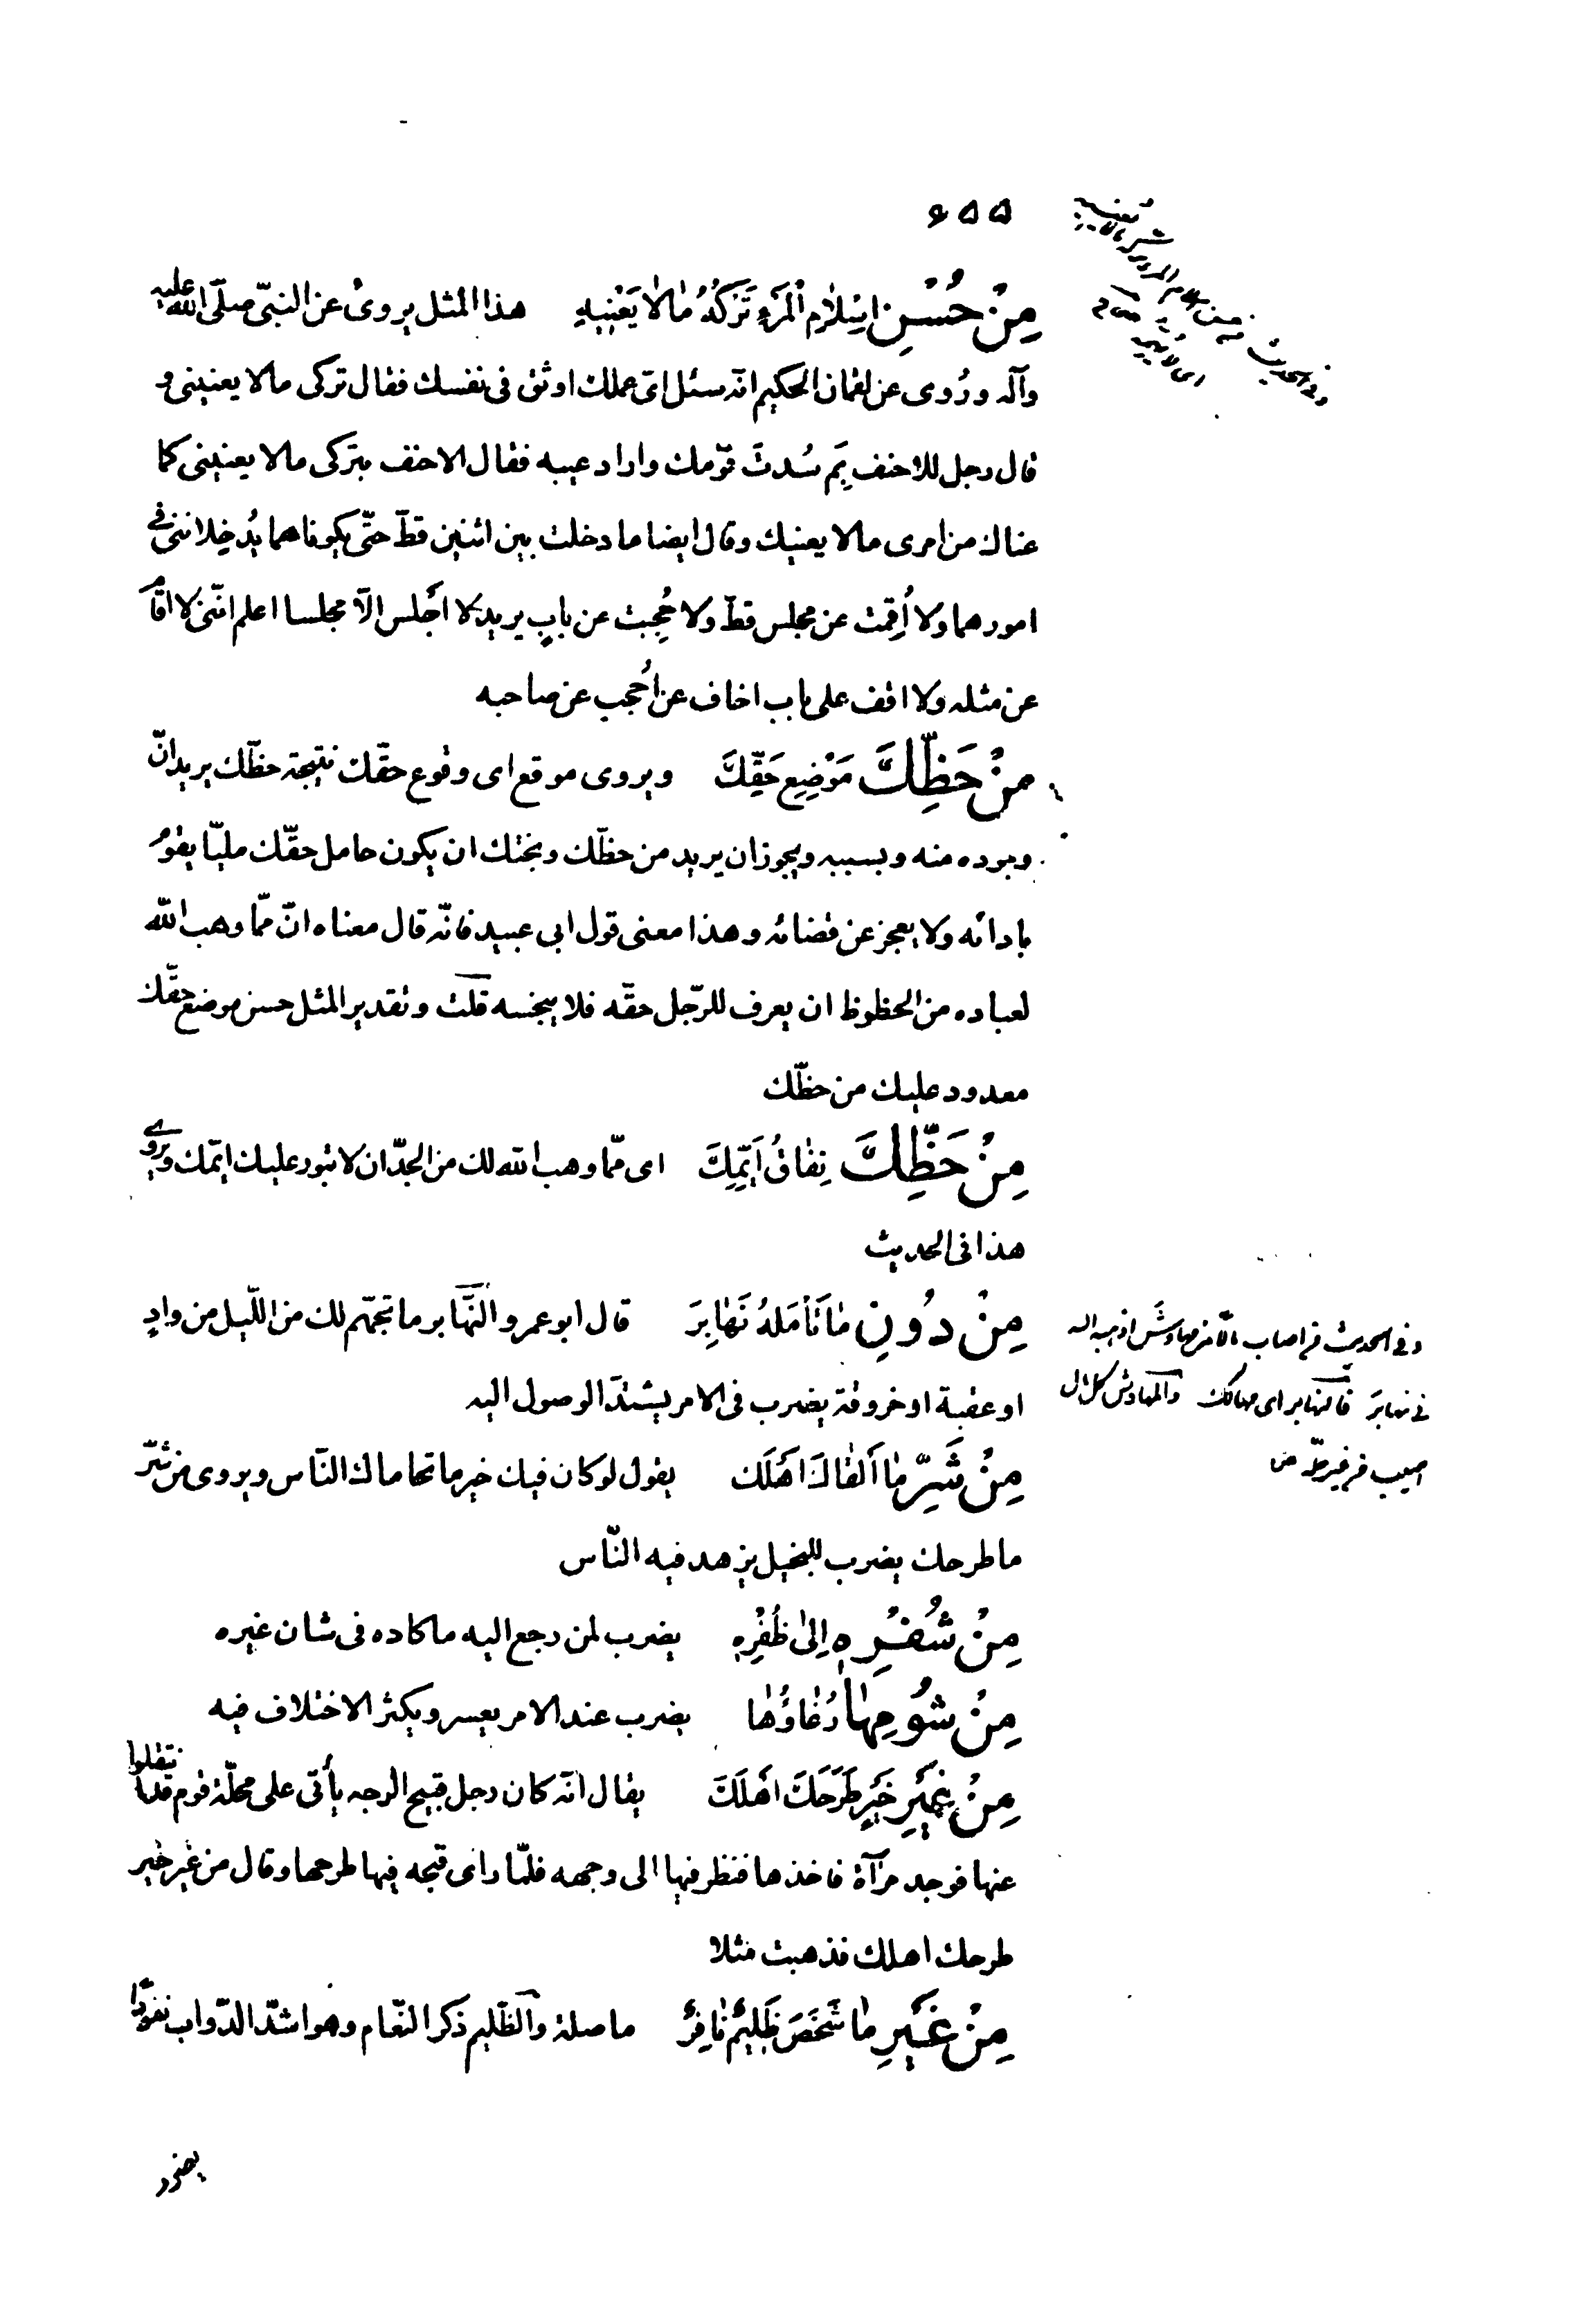 ٦٥٥
مِنْ حُسْنِ اِسْلامِ الْمَرْءِ تَرْكُهُ مٰا لاٰ يَعْنِيهِ هذا المثل يروى عن النبىّ صلّى الله عليه
وآله ورُوى عن لقمان الحكيم انّه سئل اىّ عملك اوثق فى نفسك فقال تركى مالا يعنينى و
قال رجل للاحنف بِمَ سُدتَ قوّمك واراد عيبه فقال الاحنف بتركى مالا يعنينى كما
عناك من امرى مالا يعنيك وقال ايضا ما دخلت بين اثنين قطّ حتّى يكونا هما يُدخِلاننى فى
امورهما ولا اُقِمت عن مجلس قطّ ولا حُجِبت عن بابٍ يريد لا اجْلس الّا مجلسا اعلم انّنى لا اقام
عن مثله ولا اقف على باب اخاف عن اُحجب عن صاحبه
مِنْ حَظِّكَ مَوْضِعِ حَقِّكَ ويروى موقع اى وقوع حقّك نتيجة حظّك يريد انّ
وجوده منه وبسببه ويجوز ان يريد من حظّك وبختك ان يكون حامل حقّك مليّا يقوم
بادائه ولا يعجز عن قضائه وهذا معنى قول ابى عبيد فانّه قال معناه انّ ممّا وهب الله
لعباده من الحظوظ ان يعرف للرّجل حقّه فلا يبخسه قلت وتقدير المثل حسن موضع حقّك
معدود عليك من حظّك
مِنْ حَظِّكَ نِفاقُ اَيِّمِكَ اى ممّا وهب الله لك من الجدّ ان لا تبور عليك ايّمك ويروى
هذا فى الحديث
مِنْ دُونِ مٰا تَأمَلهُ نَهٰابِرَ قال ابو عمرو النَّهابر ما تجهّم لك من اللّيل من وادٍ
او عقبة او خروقة يضرب فى الامر يشتدّ الوصول اليه
مِنْ شَرِّ مٰا أَلقاكَ اَهْلَك يقول لو كان فيك خير ما تحاماك النّاس ويروى من شرّ
ما طرحك يضرب للبخيل يزهد فيه النّاس
مِنْ شُفْرِهِ اِلىٰ ظُفْرِهِ يضرب لمن رجع اليه ما كاده فى شان غيره
مِنْ شُومِهٰا رُغاؤُهٰا يضرب عند الامر يعسر ويكثر الاختلاف فيه
مِنْ غَيْرِ خَيْرٍ طَرَحَكَ اَهْلَكَ يقال انّه كان رجل قبيح الوجه يأتى على محلّة قوم قد انتقلوا
عنها فوجد مرآة فاخذها فنظر فيها الى وجهه فلمّا راى قبحه فيها طرحها وقال من غير خير
طرحك اهلك فذهبت مثلا
مِنْ غَيْرِ مٰا شَخَصَ ظَلِيمٌ نٰافِرٌ ما صلة والظّليم ذكر النّعام وهو اشدّ الدّواب نفورًا
وفى الحديث من اصاب مالا من مهاوش اذهبه الله
فى نهابَر فالنهابر اى مهالك والمهاوش كل مال
اصيب من غير حلّه ص
يضرب